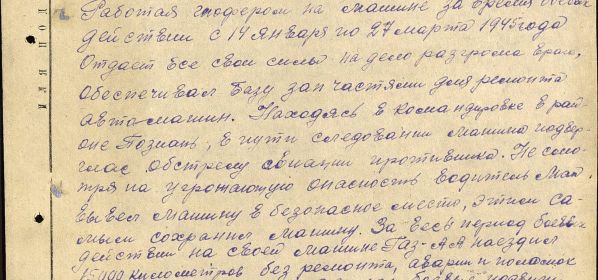 Работая шофером на машине за время боевых
действий с 14 января по 27 марта 1945 года
Отдает все свои силы на дело разгрома врага,
обеспечивал базу зап частями для ремонта
автомашин. Находясь в командировке в рай-
оне Познань, в пути следования машина подвер-
глась обстрелу авиации противника. Не смо-
тря на угрожающую опасность водитель
вывел машину в безопасное место, этим са-
мым сохранил машину. За весь период боевых
действий на своей машине Газ-АА наездил
15000 километров без ремонта, аварии и поломок